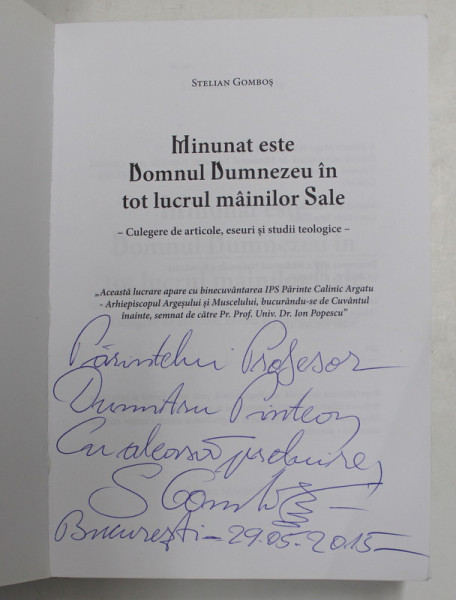 Stelian Gomboș
Minunat este
Domnul Dumnezeu în
tot lucrul mâinilor Sale
– Culegere de articole, eseuri și studii teologice –
„Această lucrare apare cu binecuvântarea IPS Părinte Calinic Argatu
- Arhiepiscopul Argeșului și Muscelului, bucurându-se de Cuvântul
înainte, semnat de către Pr. Prof. Univ. Dr. Ion Popescu”
Părintelui Profesor
Dumitru Pintea,
Cu aleasă prețuire,
S Gomboș
București – 29.05.2015 –